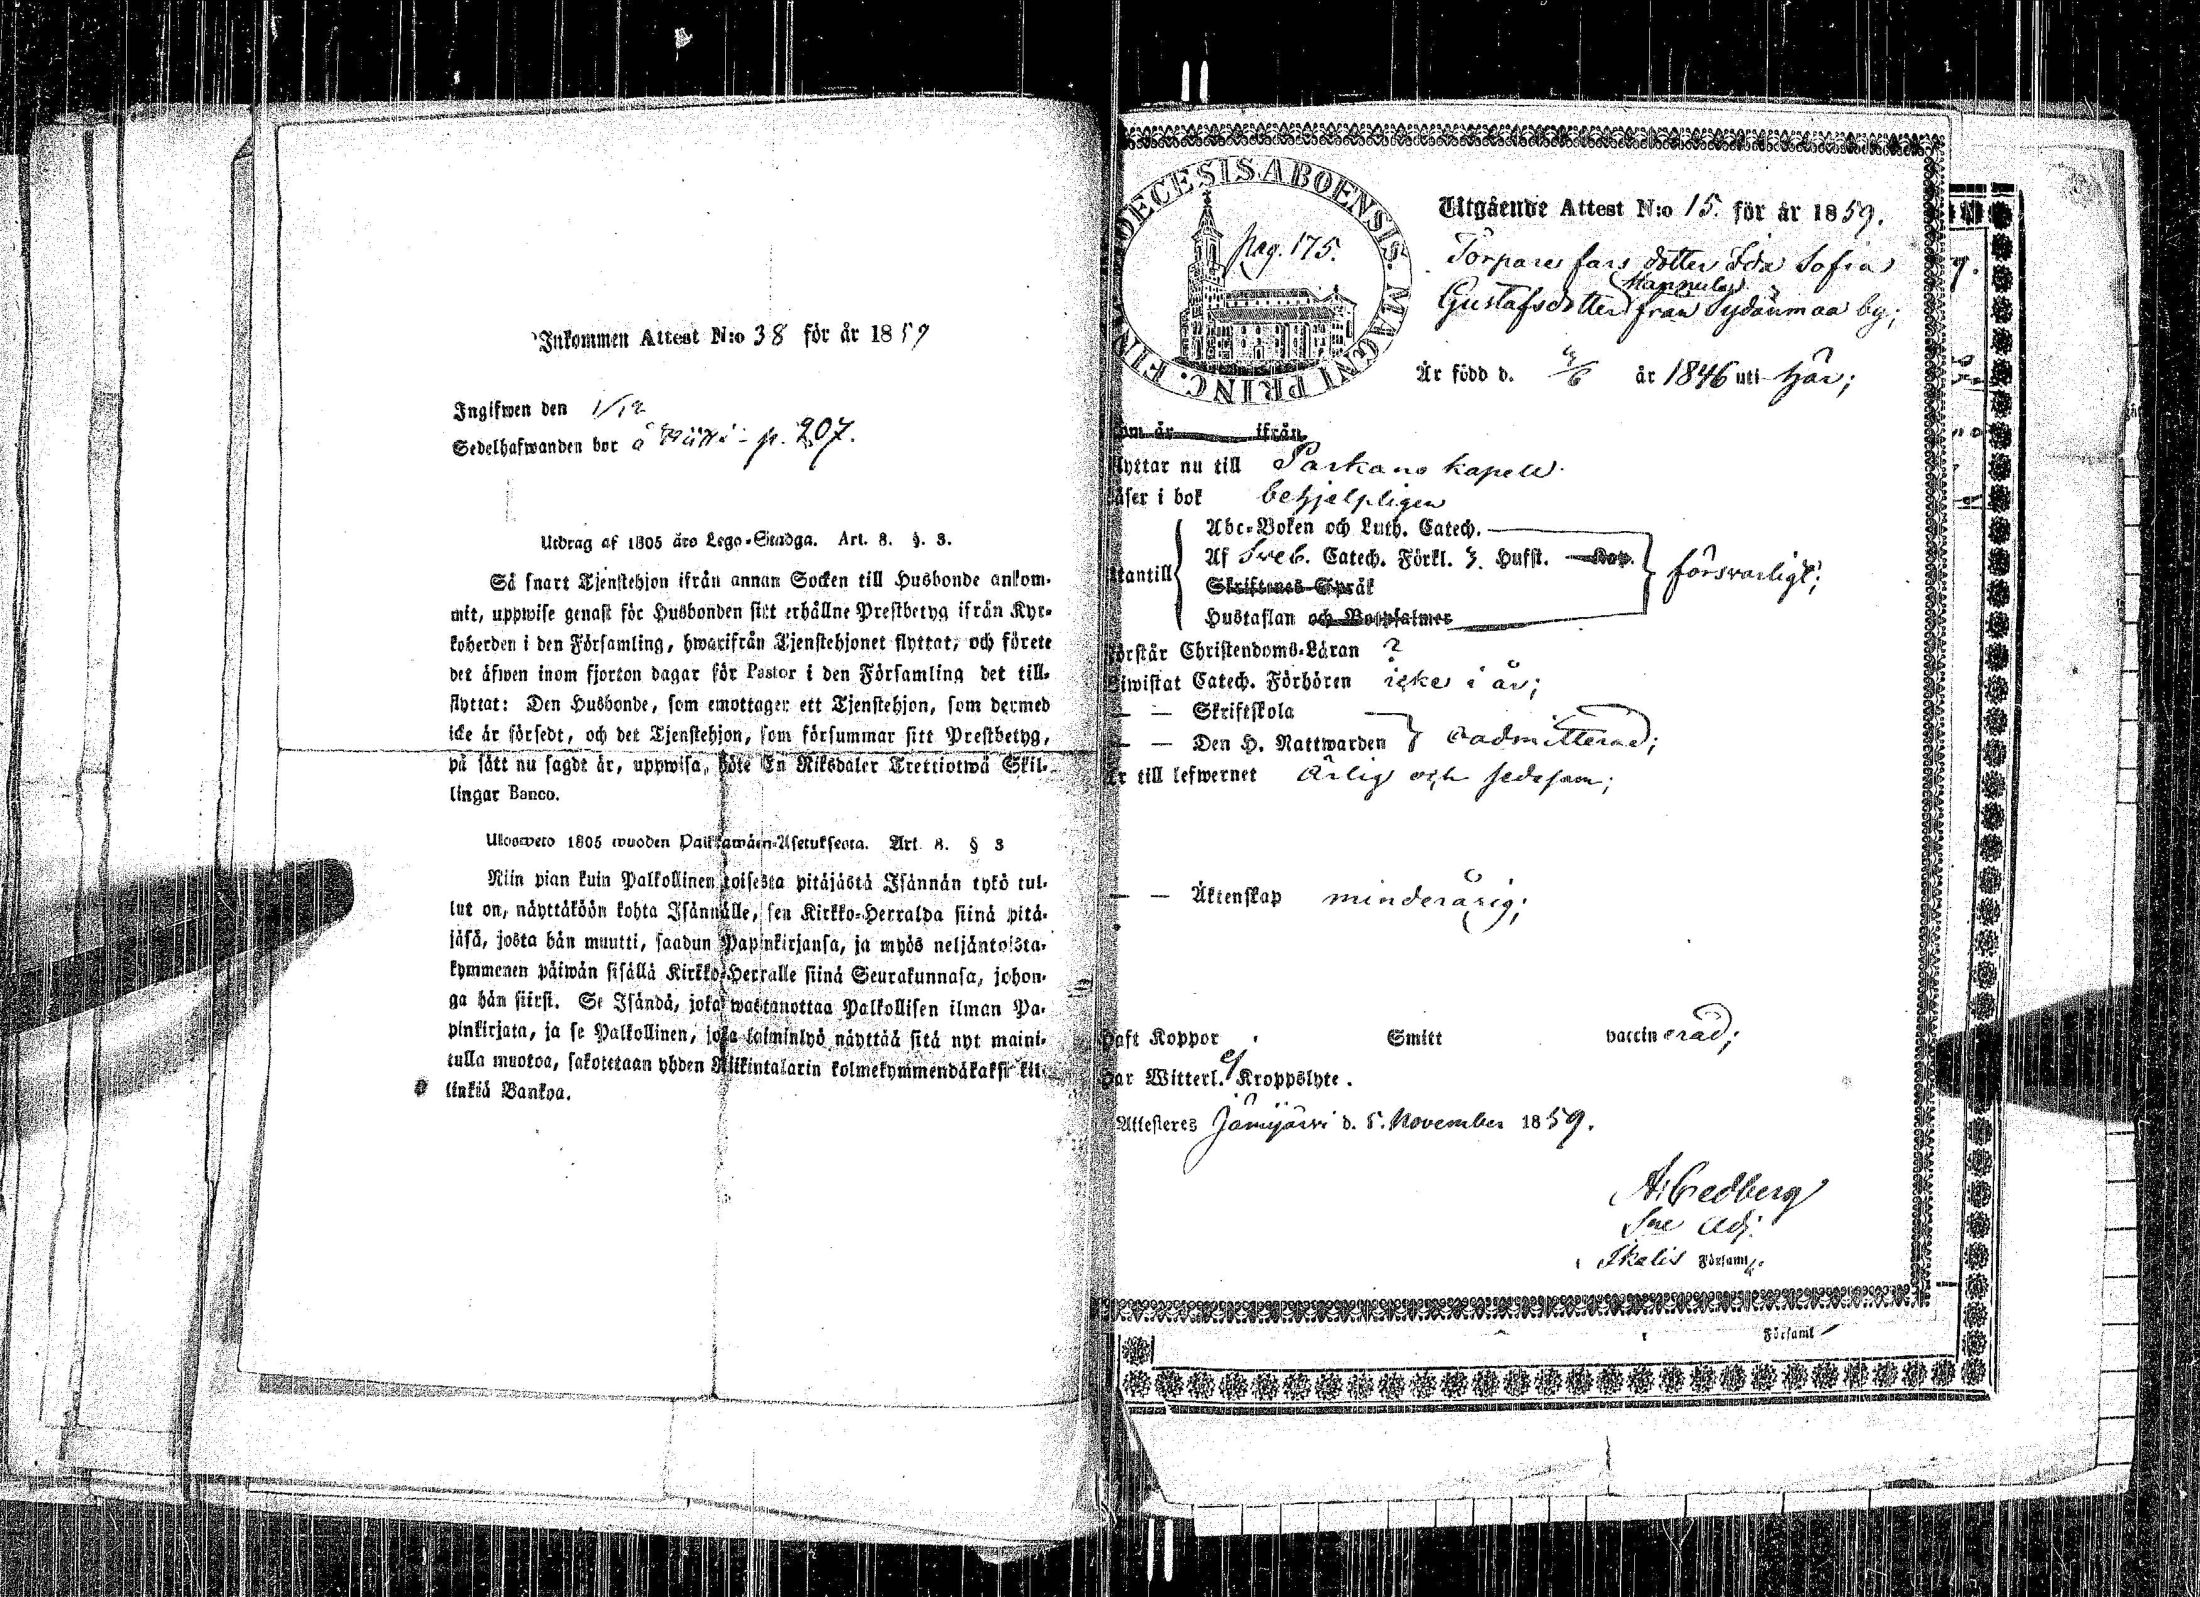 Inkommen Attest N:o 38 för år 1859
Ingifwen den 1/12
Sedelhafwanden bor å p. 207.
Utdrag af 1805 års Lego-Stadga. Art. 8. §. 3.
Så snart Tjenstehjon ifrån annan Socken till Husbonde ankom-
mit, uppwise genast för Husbonden sitt erhållne Prestbetyg ifrån Kyr-
koherden i den Församling, hwarifrån Tjenstehjonet flyttat, och förete
det äfwen inom fjorton dagar för Pastor i den Församling det till-
flyttat: Den Husbonde, som emottager ett Tjenstehjon, som dermed
icke är försedt, och det Tjenstehjon, som försummar sitt Prestbetyg,
på sätt nu sagdt är, uppwisa, böte En Riksdaler Trettiotwå Skil-
lingar Banco.
Ulosweto 1805 wuoden Palkkawäen-Asetuksesta. Art. 8. § 3
Niin pian kuin Palkollinen toisesta pitäjästä Isännän tykö tul-
lut on, näyttäköön kohta Isännälle, sen Kirkko-Herralda siinä pitä-
jäsä, josta hän muutti, saadun Papinkirjansa, ja myös neljäntoista-
kymmenen päiwän sisällä Kirkko-Herralle siinä Seurakunnasa, johon-
ga hän siirst. Se Isändä, joka wastanottaa Palkollisen ilman Pa-
pinkirjata, ja se Palkollinen, joka laiminlyö näyttää sitä nyt maini-
tulla muotoa, sakotetaan yhden Riikintalarin kolmekymmendäkaksi kil-
linkiä Bankoa.
DECESIS ABOENSIS. MAGNI PRINC. FIN
pag. 175.
Utgående Attest N:o 15. för år 1859.
Torpare fars dotter Ida Sofia
Mannila
Gustafsdotter från Sydänmaa by;
Är född d. 4/6 år 1846 uti här;
om år ifrån
lyttar nu till Parkano kapell
äser i bok behjelpligen
Abc-Boken och Luth. Catech.
Af Sveb. Catech. Förkl. 3. Hufst. Kap.
tantill försvarligt;
Skriftenes Språk
Hustaflan och Botpsalmer
örstår Christendoms-Läran ?
iwistat Catech. Förhören icke i år;
— — Skriftskola
— — Den H. Nattwarden oadmitterad;
r till lefwernet ärlig och sedesam;
— — Äktenskap minderårig;
aft Koppor Smitt vaccinerad;
ar Witterl. ej Kroppslyte.
Attesteres Jämijärvi d. 5. November 1859.
A. Cedberg
Sne Adj.
Ikalis Församl.
Församl